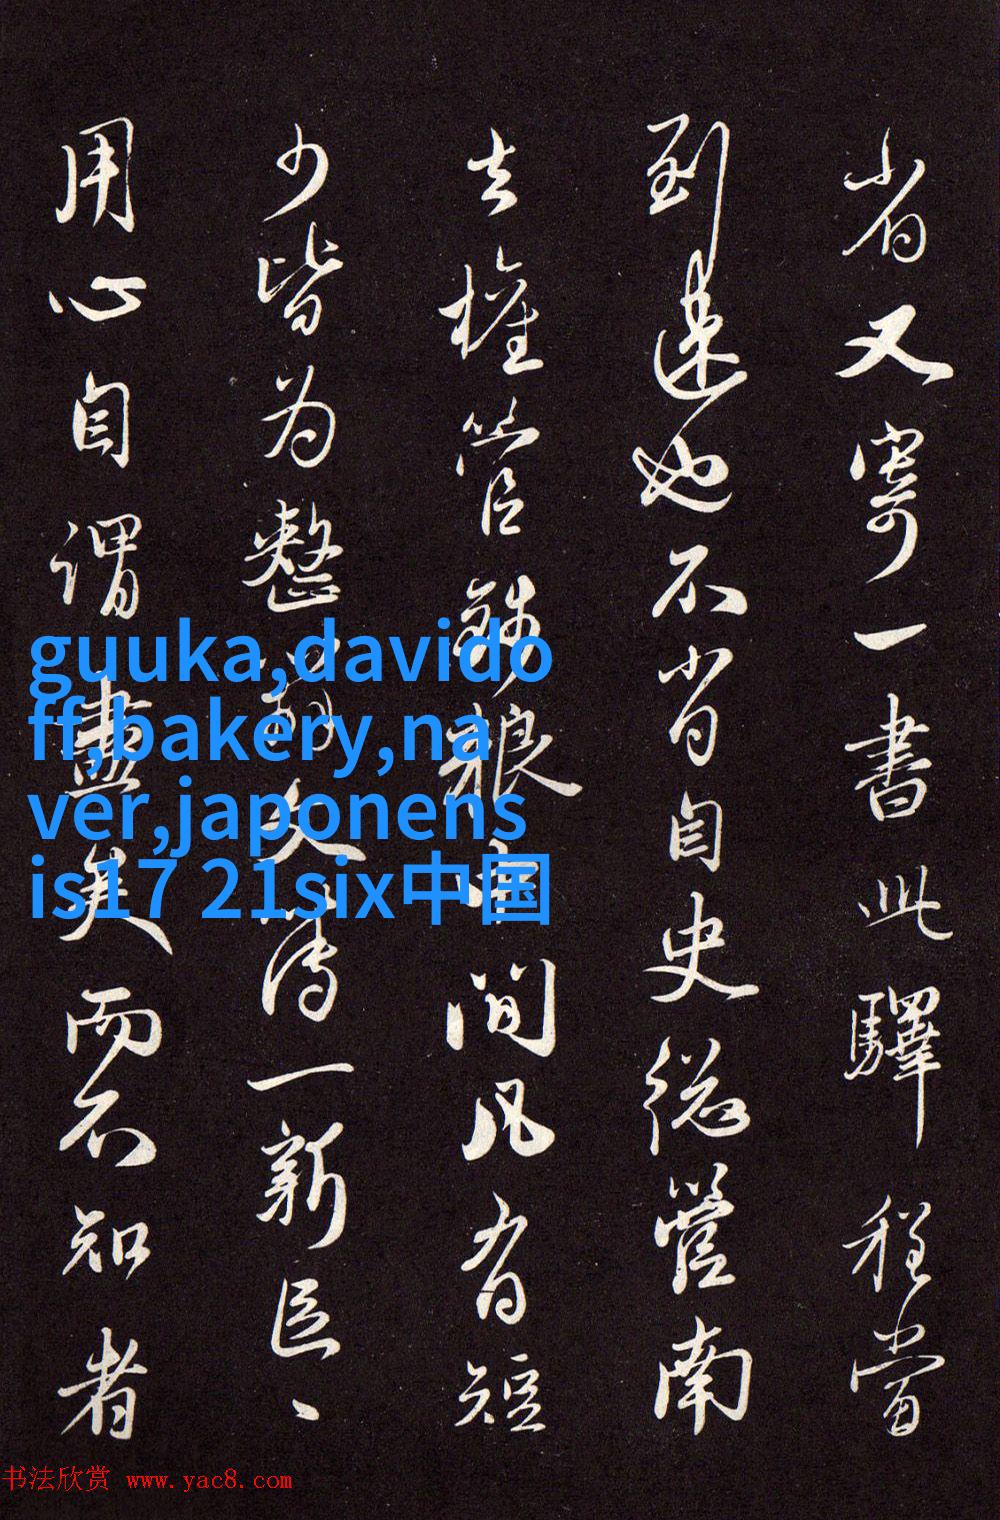 省又寄一書此驛程當
到速也不肖自史総管南
去權管錢粮中間凡有短
少皆为整 文簿一新
用心自謂盡矣而不知者
guuka,davido
ff,bakery,na
ver,japonens
is17 21six中国
书法欣赏 www.yac8.com